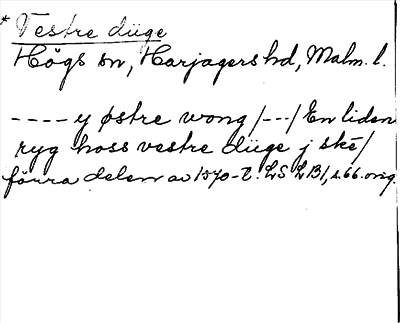 * Vestre düge
Högs sn, Harjagers hd, Malm. l.
---- y østre wong /---/ En liden
ryg hoss vestre düge j ske/
förra delen av 1570-t. LS LB1, s. 66. orig.